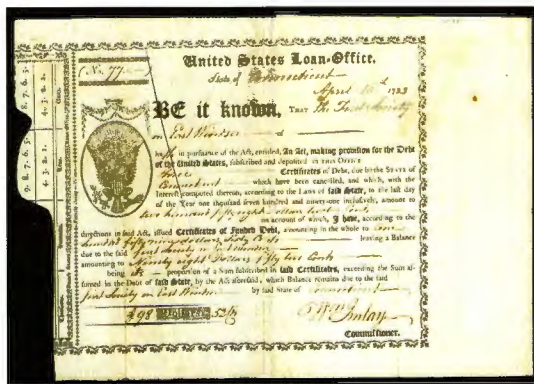 United States Loan-Office.
(No. 77.)
State of Connecticut
April 10th 1793
BE it known, THAT The First Society
in East Windsor
in pursuance of the Act, entitled, An Act, making provision for the Debt
of the United States, subscribed and deposited IN THIS OFFICE
Three Certificates of Debt, due by the STATE OF
Connecticut which have been cancelled, and which, with the
Interest computed thereon, according to the Laws of said State, to the last day
of the Year one thousand seven hundred and ninety-one inclusively, amount to
two hundred fifty eight dollars
on account of which, I have, according to the
directions in said Act, issued Certificates of Funded Debt, amounting in the whole to one
hundred fifty nine dollars, sixty leaving a Balance
due to the said first Society in East Windsor
amounting to Ninety eight Dollars fifty two Cents
being its proportion of a Sum subscribed in said Certificates, exceeding the Sum as-
sumed in the Debt of said State, by the Act aforesaid, which Balance remains due to the said
first Society in East Windsor by said State of Connecticut
$98 DOLLARS 52/100
Commissioner.
9. 8. 7. 6. 5.
4. 3. 2. 1.
8. 7. 6. 5.
4. 3. 2. 1.